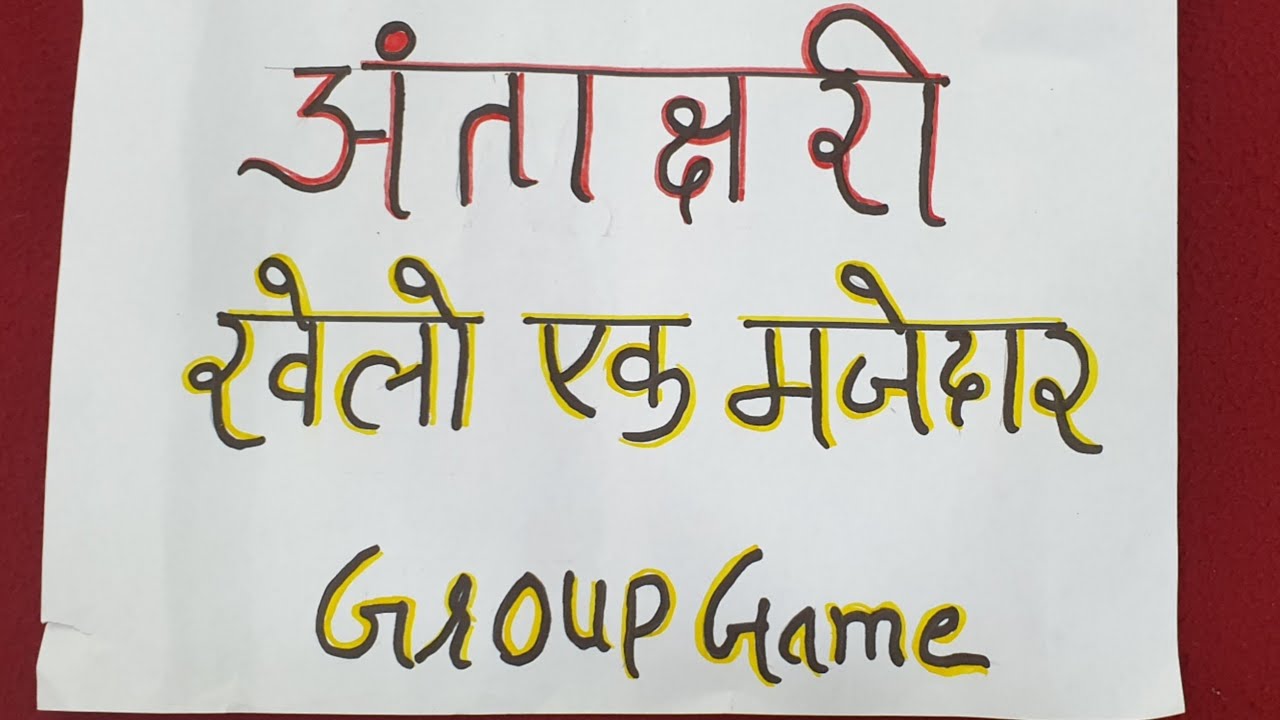 अंताक्षरी
खेलो एक मजेदार
Group Game